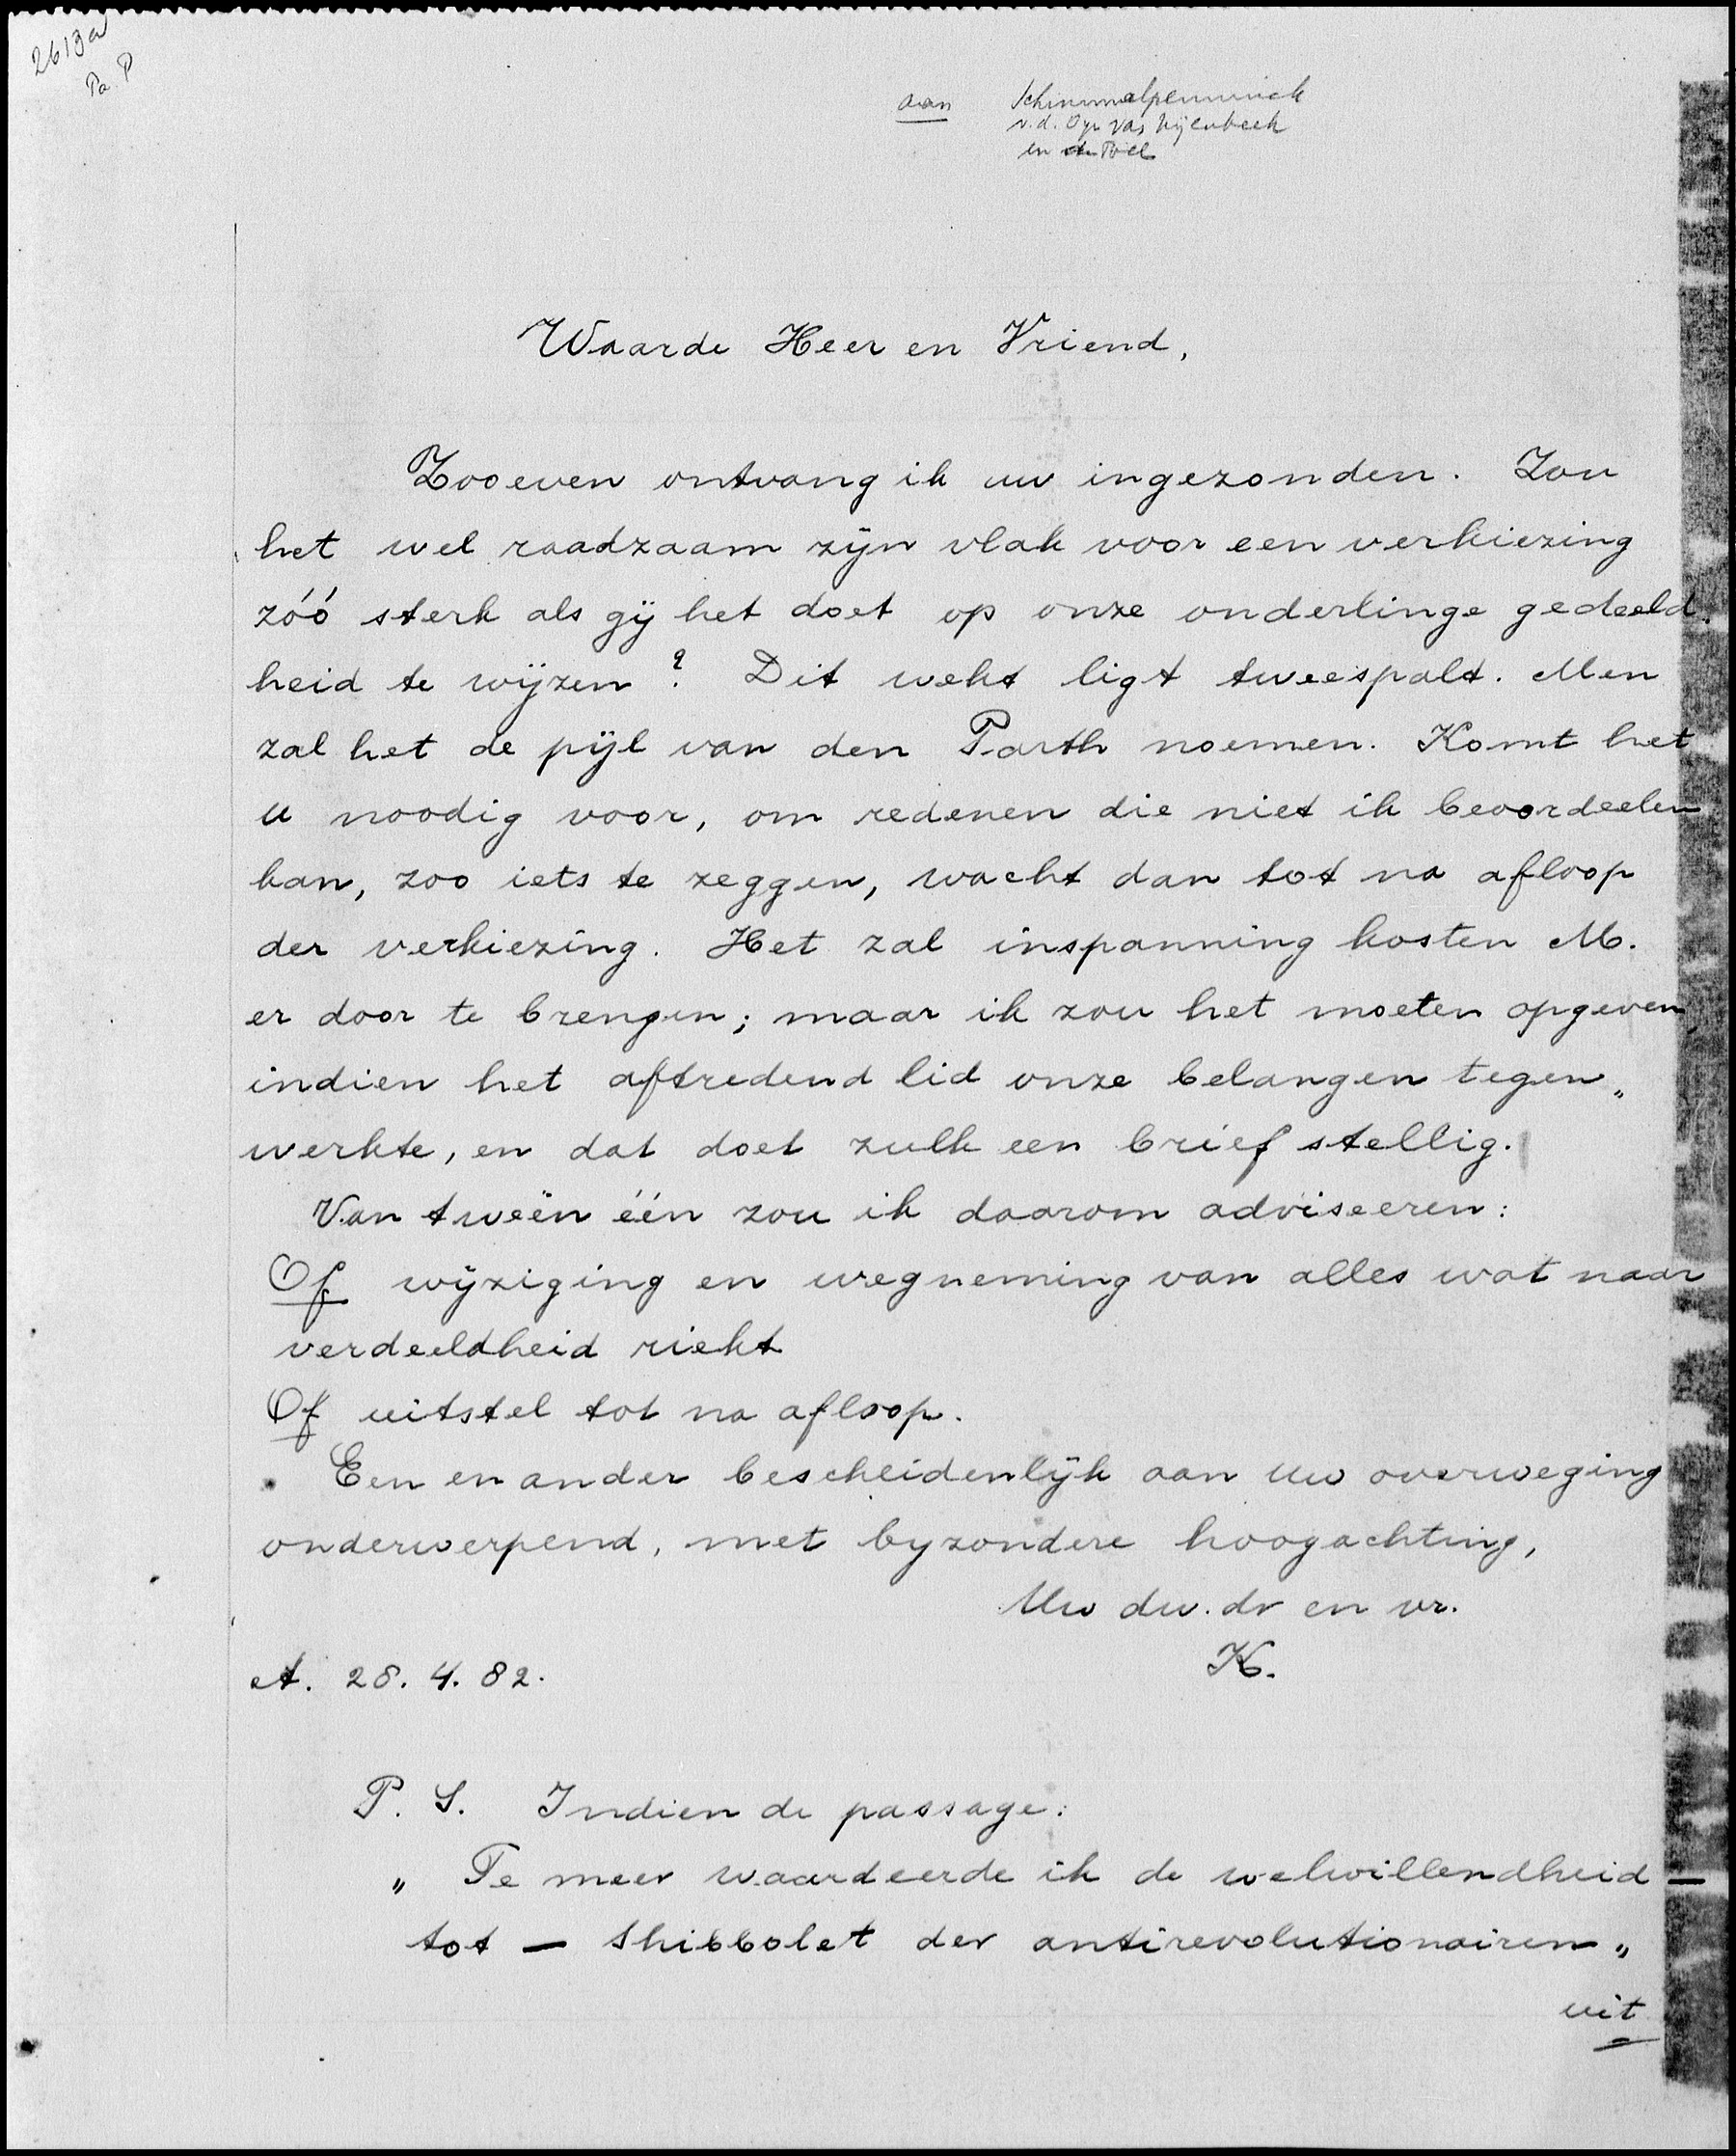 2613a
Pa. P
aan Schimmelpenninck
v.d. Oye van Nijenbeek
en de Poll
Waarde Heer en Vriend,
Zooeven ontvang ik uw ingezonden. Zou
het wel raadzaam zijn vlak voor een verkiezing
zóó sterk als gij het doet op onze onderlinge gedeeld-
heid te wijzen? Dit wekt ligt tweespalt. Men
zal het de pijl van den Parth noemen. Komt het
u noodig voor, om redenen die niet ik beoordeelen
kan, zoo iets te zeggen, wacht dan tot na afloop
der verkiezing. Het zal inspanning kosten M.
er door te brengen; maar ik zou het moeten opgeven,
indien het aftredend lid onze belangen tegen„
werkte, en dat doet zulk een brief stellig.
Van tweën één zou ik daarom adviseeren:
Of wijziging en wegneming van alles wat naar
verdeeldheid riekt
Of uitstel tot na afloop.
Een en ander bescheidenlijk aan uw overweging
onderwerpend, met byzondere hoogachting,
Uw dw. dr en vr.
K.
A. 28. 4. 82.
P. S. Indien de passage:
„ Te meer waardeerde ik de welwillendheid —
tot — Shibbolet der antirevolutionairen„
uit